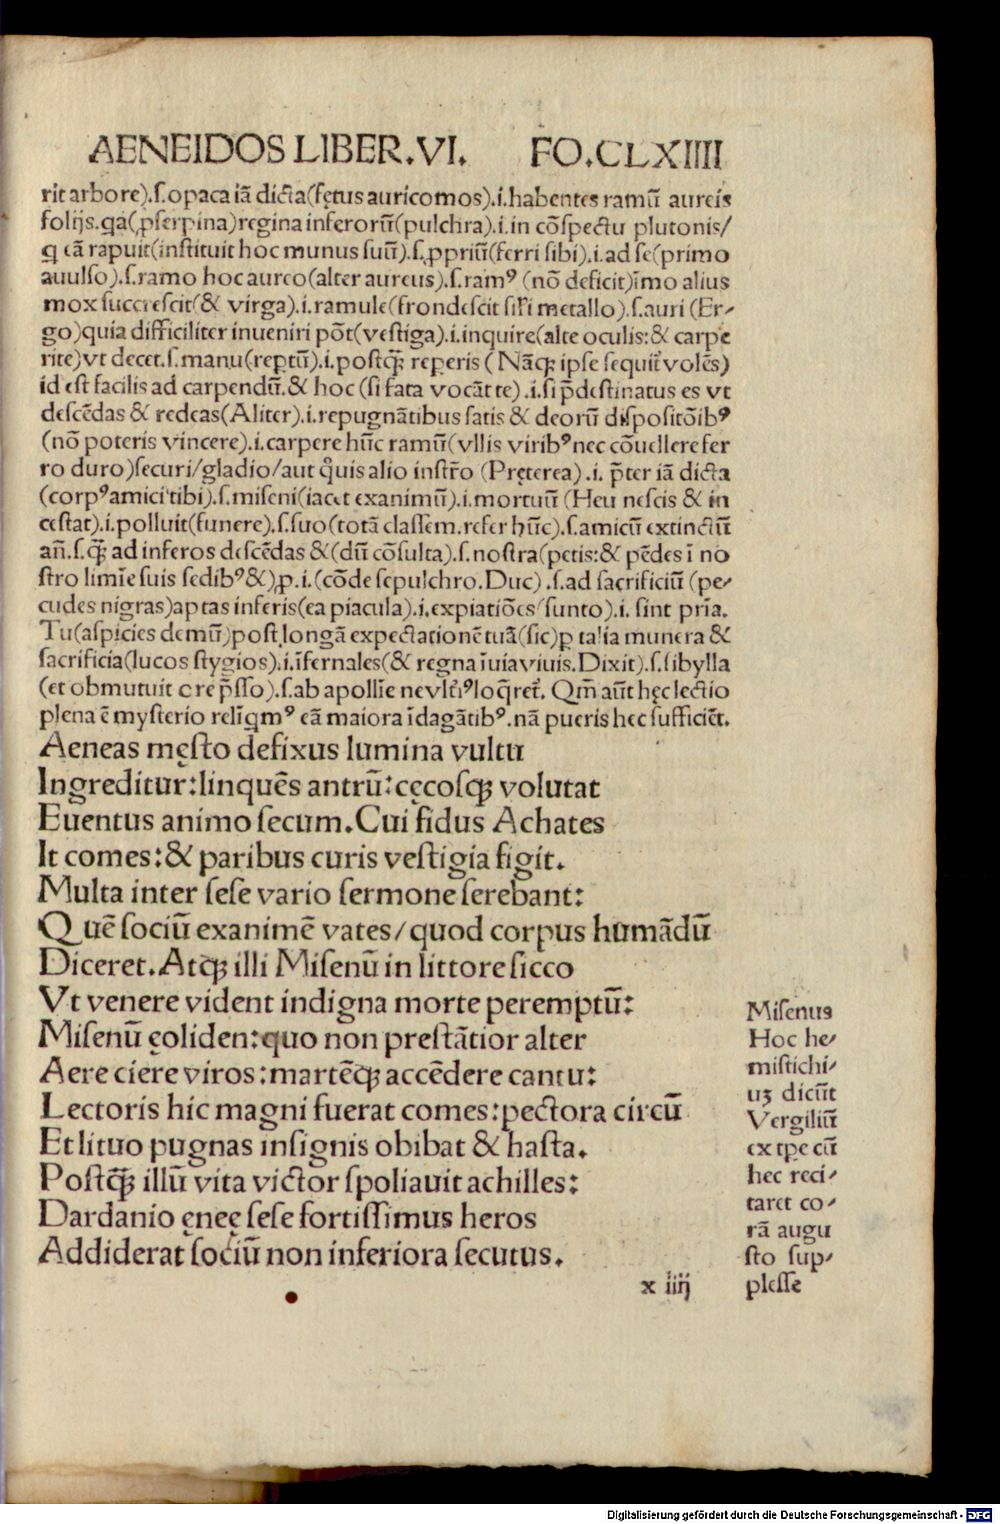 AENEIDOS LIBER.VI. FO.CLXIIII
rit arbore).ſ.opaca iã dicta(fętus auricomos).i.habentes ramũ aureis
folijs.qa(ꝓſerpina)regina inferorũ(pulchra).i.in cõſpectu plutonis/
q eã rapuit(inſtituit hoc munus ſuũ).ſ.ꝓpriũ(ferri ſibi).i.ad ſe(primo
auulſo).ſ.ramo hoc aureo(alter aureus).ſ.ramꝰ (nõ deficit)ĩmo alius
mox ſuccreſcit(& virga).i.ramule(frondeſcit ſiľi metallo).ſ.auri (Er⸗
go)quia difficiliter inueniri põt(veſtiga).i.inquire(alte oculis:& carpe
rite)vt decet.ſ.manu(reptũ).i.poſtqꝫ̃ reperis (Nãqꝫ ipſe ſequit᷑ volẽs)
id eſt facilis ad carpendũ.& hoc (ſi fata vocãt te) .i.ſi p̃deſtinatus es vt
deſcẽdas & redeas(Aliter).i.repugnãtibus fatis & deorũ diſpoſitõibꝰ
(nõ poteris vincere).i.carpere hũc ramũ(vllis viribꝰ nec cõuellere fer
ro duro)ſecuri/gladio/aut q̃uis alio inſtr̃o (Pręterea) .i. p̃ter iã dicta
(corpꝰ amici tibi).ſ.miſeni(iacet exanimũ).i.mortuũ (Heu neſcis & in
ceſtat).i.polluit(funere).ſ.ſuo(totã claſſem.refer hũc).ſ.amicũ extinctũ
añ.ſ.qꝫ̃ ad inferos deſcẽdas &(dũ cõſulta).ſ.noſtra(petis:& pẽdes ĩ no
ſtro limĩe ſuis ſedibꝰ &)ꝓ.i.(cõde ſepulchro.Duc) .ſ.ad ſacrificiũ (pe⸗
cudes nigras)aptas inferis(ea piacula).i.expiatiões(ſunto).i. ſint prĩa.
Tu(aſpicies demũ)poſt longã expectationẽ tuã(ſic)ꝑ talia munera &
ſacrificia(lucos ſtygios).i.ĩfernales(& regna ĩuia viuis.Dixit).ſ.ſibylla
(et obmutuit ore p̃ſſo).ſ.ab apollĩe ne vlt̃iꝰ loq̃ret᷑. Qm̃ aũt hęc lectio
plena ẽ myſterio relĩqmꝰ eã maiora ĩdagãtibꝰ.nã pueris hec ſufficiẽt.
Aeneas męſto defixus lumina vultu
Ingreditur:linquẽs antrũ:cęcoſqꝫ volutat
Euentus animo ſecum.Cui fidus Achates
It comes:& paribus curis veſtigia figit.
Multa inter ſeſe vario ſermone ſerebant:
Quẽ ſociũ exanimẽ vates/quod corpus humãdũ
Diceret.Atqꝫ illi Miſenũ in littore ſicco
Vt venere vident indigna morte peremptũ:
Miſenũ ęoliden:quo non preſtãtior alter
Aere ciere viros:martẽqꝫ accẽdere cantu:
Lectoris hic magni fuerat comes:pectora circũ
Et lituo pugnas inſignis obibat & haſta.
Poſtqꝫ̃ illũ vita victor ſpoliauit achilles:
Dardanio ęneę ſeſe fortiſſimus heros
Addiderat ſociũ non inferiora ſecutus.
x iiij
Miſenus
Hoc he⸗
miſtichi⸗
uꝫ dicũt
Vergiliũ
ex tꝑe cũ
hec reci⸗
taret co⸗
rã augu
ſto ſup⸗
pleſſe
Digitalisierung gefördert durch die Deutsche Forschungsgemeinschaft - DFG